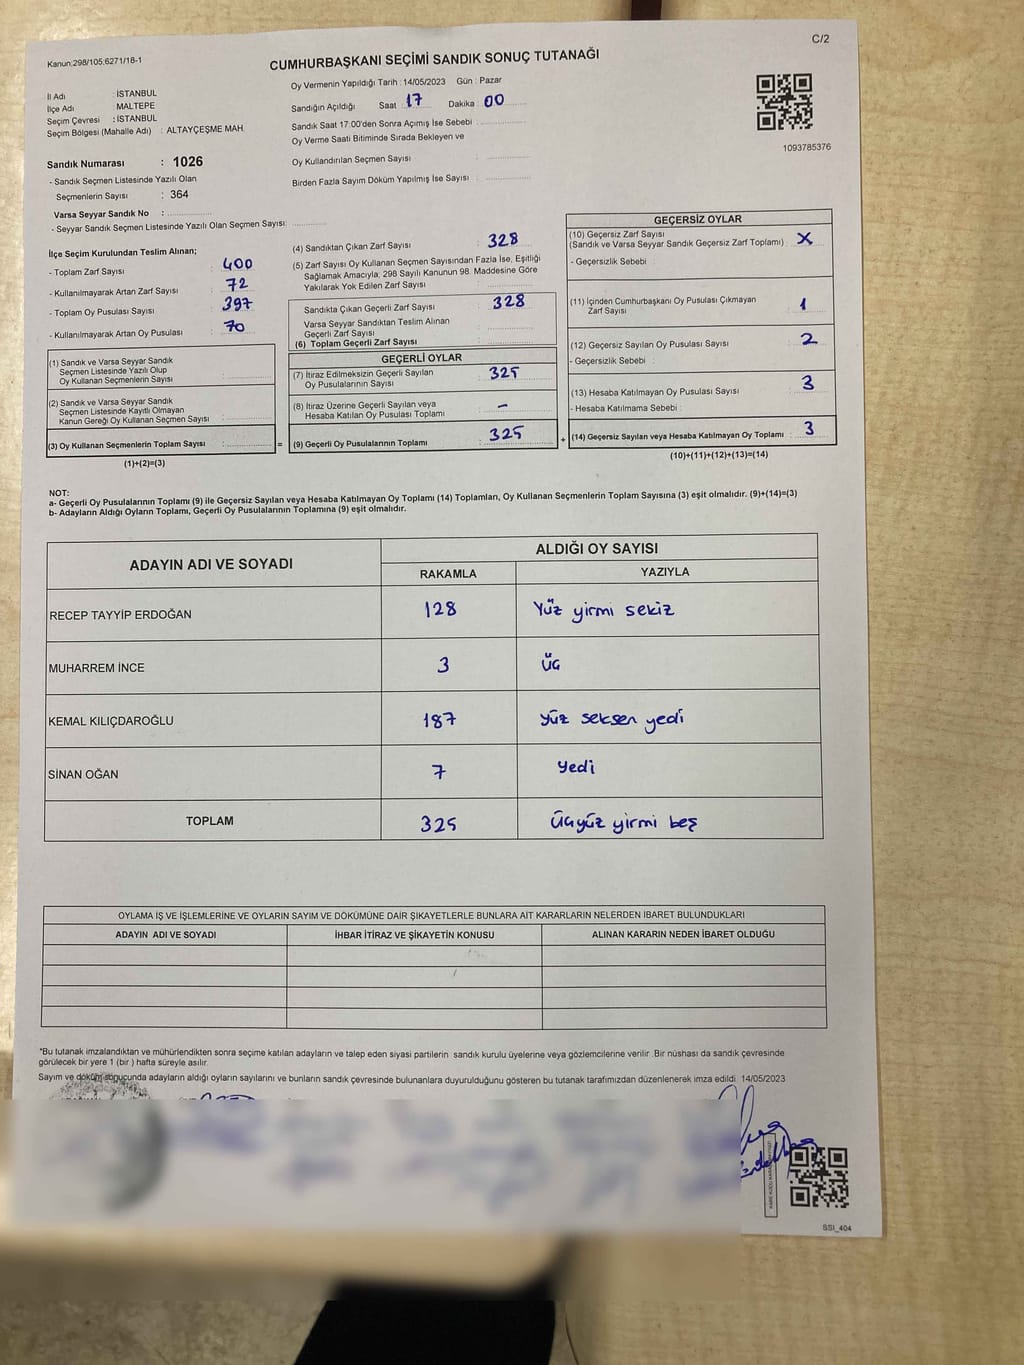 C/2
Kanun:298/105;6271/18-1
CUMHURBAŞKANI SEÇİMİ SANDIK SONUÇ TUTANAĞI
İl Adı : İSTANBUL
İlçe Adı : MALTEPE
Seçim Çevresi : İSTANBUL
Seçim Bölgesi (Mahalle Adı) : ALTAYÇEŞME MAH.
Sandık Numarası : 1026
- Sandık Seçmen Listesinde Yazılı Olan
Seçmenlerin Sayısı : 364
Varsa Seyyar Sandık No :
- Seyyar Sandık Seçmen Listesinde Yazılı Olan Seçmen Sayısı:
Oy Vermenin Yapıldığı Tarih : 14/05/2023 Gün : Pazar
Sandığın Açıldığı Saat 17 Dakika 00
Sandık Saat 17:00'den Sonra Açımış İse Sebebi :
Oy Verme Saati Bitiminde Sırada Bekleyen ve
Oy Kullandırılan Seçmen Sayısı :
Birden Fazla Sayım Döküm Yapılmış İse Sayısı :
1093785376
İlçe Seçim Kurulundan Teslim Alınan;
- Toplam Zarf Sayısı : 400
- Kullanılmayarak Artan Zarf Sayısı : 72
- Toplam Oy Pusulası Sayısı : 397
- Kullanılmayarak Artan Oy Pusulası : 70
(1) Sandık ve Varsa Seyyar Sandık
Seçmen Listesinde Yazılı Olup
Oy Kullanan Seçmenlerin Sayısı :
(2) Sandık ve Varsa Seyyar Sandık
Seçmen Listesinde Kayıtlı Olmayan
Kanun Gereği Oy Kullanan Seçmen Sayısı :
(3) Oy Kullanan Seçmenlerin Toplam Sayısı :
(1)+(2)=(3)
(4) Sandıktan Çıkan Zarf Sayısı : 328
(5) Zarf Sayısı Oy Kullanan Seçmen Sayısından Fazla İse, Eşitliği
Sağlamak Amacıyla; 298 Sayılı Kanunun 98. Maddesine Göre
Yakılarak Yok Edilen Zarf Sayısı :
Sandıkta Çıkan Geçerli Zarf Sayısı : 328
Varsa Seyyar Sandıktan Teslim Alınan
Geçerli Zarf Sayısı :
(6) Toplam Geçerli Zarf Sayısı :
GEÇERLİ OYLAR
(7) İtiraz Edilmeksizin Geçerli Sayılan
Oy Pusulalarının Sayısı : 325
(8) İtiraz Üzerine Geçerli Sayılan veya
Hesaba Katılan Oy Pusulası Toplamı : -
= (9) Geçerli Oy Pusulalarının Toplamı : 325
GEÇERSİZ OYLAR
(10) Geçersiz Zarf Sayısı
(Sandık ve Varsa Seyyar Sandık Geçersiz Zarf Toplamı) : X
- Geçersizlik Sebebi :
(11) İçinden Cumhurbaşkanı Oy Pusulası Çıkmayan
Zarf Sayısı : 1
(12) Geçersiz Sayılan Oy Pusulası Sayısı : 2
- Geçersizlik Sebebi :
(13) Hesaba Katılmayan Oy Pusulası Sayısı : 3
- Hesaba Katılmama Sebebi :
+ (14) Geçersiz Sayılan veya Hesaba Katılmayan Oy Toplamı : 3
(10)+(11)+(12)+(13)=(14)
NOT:
a- Geçerli Oy Pusulalarının Toplamı (9) ile Geçersiz Sayılan veya Hesaba Katılmayan Oy Toplamı (14) Toplamları, Oy Kullanan Seçmenlerin Toplam Sayısına (3) eşit olmalıdır. (9)+(14)=(3)
b- Adayların Aldığı Oyların Toplamı, Geçerli Oy Pusulalarının Toplamına (9) eşit olmalıdır.
ADAYIN ADI VE SOYADI ALDIĞI OY SAYISI
RAKAMLA YAZIYLA
RECEP TAYYİP ERDOĞAN 128 Yüz yirmi sekiz
MUHARREM İNCE 3 üç
KEMAL KILIÇDAROĞLU 187 yüz seksen yedi
SİNAN OĞAN 7 yedi
TOPLAM 325 üçyüz yirmi beş
OYLAMA İŞ VE İŞLEMLERİNE VE OYLARIN SAYIM VE DÖKÜMÜNE DAİR ŞİKAYETLERLE BUNLARA AİT KARARLARIN NELERDEN İBARET BULUNDUKLARI
ADAYIN ADI VE SOYADI İHBAR İTİRAZ VE ŞİKAYETİN KONUSU ALINAN KARARIN NEDEN İBARET OLDUĞU
*Bu tutanak imzalandıktan ve mühürlendikten sonra seçime katılan adayların ve talep eden siyasi partilerin sandık kurulu üyelerine veya gözlemcilerine verilir .Bir nüshası da sandık çevresinde
görülecek bir yere 1 (bir ) hafta süreyle asılır.
Sayım ve döküm sonucunda adayların aldığı oyların sayılarını ve bunların sandık çevresinde bulunanlara duyurulduğunu gösteren bu tutanak tarafımızdan düzenlenerek imza edildi. 14/05/2023
SSI_404